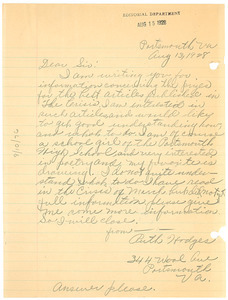 EDITORIAL DEPARTMENT
AUG 15 1928
Portsmouth, Va
Aug 12, 1928
Dear Sir:
I am writing you for
information concerning the prize
for the best articles & in
The Crisis. I am interested in
such articles and would like
to get good understanding
and what to do. I am of course
a school girl of the Portsmouth
High School and very interested
in poetry and my favorite is
drawing. I do not quite under-
stand what to do. I have read
in the Crisis of March but not
full information please give
me some more information
So I will close.
from
Ruth Hodges
244 Wool Ave
Portsmouth
Va.
Answer please.